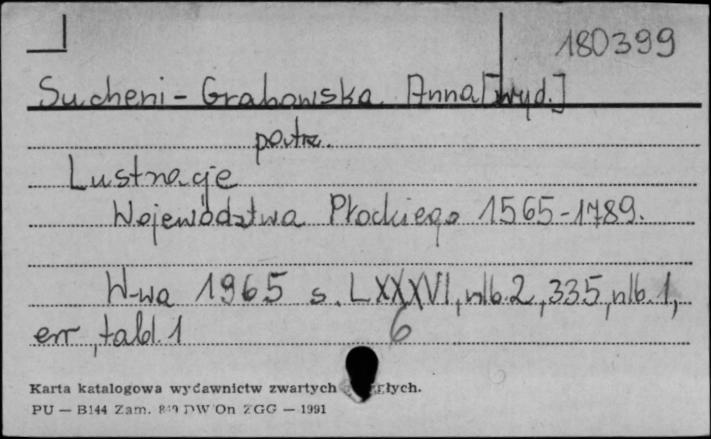 180399
Sucheni-Grabowska Anna [wyd.]
patrz.
Lustracje
Województwa Płockiego 1565-1789.
W-wa 1965 s. LXXXVI, nlb. 2, 335, nlb. 1,
err, tabl. 1
6
Karta katalogowa wydawnictw zwartych
PU — B144 Zam. DW On ZGG — 1991